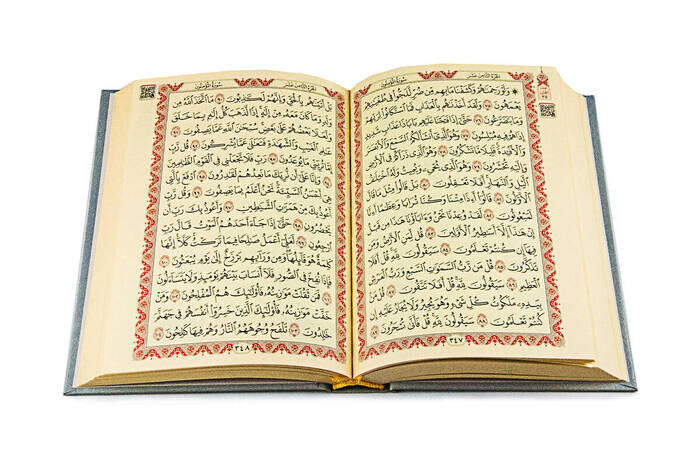 الجزء الثامن عشر سورة المؤمنون
۞ وَلَوْ رَحِمْنَٰهُمْ وَكَشَفْنَا مَا بِهِم مِّن ضُرٍّ لَّلَجُّوا۟ فِى طُغْيَٰنِهِمْ
يَعْمَهُونَ ٧٥ وَلَقَدْ أَخَذْنَٰهُم بِٱلْعَذَابِ فَمَا ٱسْتَكَانُوا۟ لِرَبِّهِمْ
وَمَا يَتَضَرَّعُونَ ٧٦ حَتَّىٰٓ إِذَا فَتَحْنَا عَلَيْهِم بَابًا ذَا عَذَابٍ شَدِيدٍ
إِذَا هُمْ فِيهِ مُبْلِسُونَ ٧٧ وَهُوَ ٱلَّذِىٓ أَنشَأَ لَكُمُ ٱلسَّمْعَ وَٱلْأَبْصَٰرَ
وَٱلْأَفْـِٔدَةَ قَلِيلًا مَّا تَشْكُرُونَ ٧٨ وَهُوَ ٱلَّذِى ذَرَأَكُمْ فِى ٱلْأَرْضِ
وَإِلَيْهِ تُحْشَرُونَ ٧٩ وَهُوَ ٱلَّذِى يُحْىِۦ وَيُمِيتُ وَلَهُ ٱخْتِلَٰفُ
ٱلَّيْلِ وَٱلنَّهَارِ أَفَلَا تَعْقِلُونَ ٨٠ بَلْ قَالُوا۟ مِثْلَ مَا قَالَ
ٱلْأَوَّلُونَ ٨١ قَالُوٓا۟ أَءِذَا مِتْنَا وَكُنَّا تُرَابًا وَعِظَٰمًا أَءِنَّا
لَمَبْعُوثُونَ ٨٢ لَقَدْ وُعِدْنَا نَحْنُ وَءَابَآؤُنَا هَٰذَا مِن قَبْلُ
إِنْ هَٰذَآ إِلَّآ أَسَٰطِيرُ ٱلْأَوَّلِينَ ٨٣ قُل لِّمَنِ ٱلْأَرْضُ وَمَن
فِيهَآ إِن كُنتُمْ تَعْلَمُونَ ٨٤ سَيَقُولُونَ لِلَّهِ قُلْ أَفَلَا
تَذَكَّرُونَ ٨٥ قُلْ مَن رَّبُّ ٱلسَّمَٰوَٰتِ ٱلسَّبْعِ وَرَبُّ ٱلْعَرْشِ
ٱلْعَظِيمِ ٨٦ سَيَقُولُونَ لِلَّهِ قُلْ أَفَلَا تَتَّقُونَ ٨٧ قُلْ مَنۢ
بِيَدِهِۦ مَلَكُوتُ كُلِّ شَىْءٍ وَهُوَ يُجِيرُ وَلَا يُجَارُ عَلَيْهِ إِن
كُنتُمْ تَعْلَمُونَ ٨٨ سَيَقُولُونَ لِلَّهِ قُلْ فَأَنَّىٰ تُسْحَرُونَ ٨٩
٣٤٧
الجزء الثامن عشر سورة المؤمنون
بَلْ أَتَيْنَٰهُم بِٱلْحَقِّ وَإِنَّهُمْ لَكَٰذِبُونَ ٩٠ مَا ٱتَّخَذَ ٱللَّهُ مِن
وَلَدٍ وَمَا كَانَ مَعَهُۥ مِنْ إِلَٰهٍ إِذًا لَّذَهَبَ كُلُّ إِلَٰهٍۭ بِمَا خَلَقَ
وَلَعَلَا بَعْضُهُمْ عَلَىٰ بَعْضٍ سُبْحَٰنَ ٱللَّهِ عَمَّا يَصِفُونَ ٩١
عَٰلِمِ ٱلْغَيْبِ وَٱلشَّهَٰدَةِ فَتَعَٰلَىٰ عَمَّا يُشْرِكُونَ ٩٢ قُل رَّبِّ
إِمَّا تُرِيَنِّى مَا يُوعَدُونَ ٩٣ رَبِّ فَلَا تَجْعَلْنِى فِى ٱلْقَوْمِ ٱلظَّٰلِمِينَ
٩٤ وَإِنَّا عَلَىٰٓ أَن نُّرِيَكَ مَا نَعِدُهُمْ لَقَٰدِرُونَ ٩٥ ٱدْفَعْ بِٱلَّتِى
هِىَ أَحْسَنُ ٱلسَّيِّئَةَ نَحْنُ أَعْلَمُ بِمَا يَصِفُونَ ٩٦ وَقُل رَّبِّ
أَعُوذُ بِكَ مِنْ هَمَزَٰتِ ٱلشَّيَٰطِينِ ٩٧ وَأَعُوذُ بِكَ رَبِّ أَن
يَحْضُرُونِ ٩٨ حَتَّىٰٓ إِذَا جَآءَ أَحَدَهُمُ ٱلْمَوْتُ قَالَ رَبِّ
ٱرْجِعُونِ ٩٩ لَعَلِّىٓ أَعْمَلُ صَٰلِحًا فِيمَا تَرَكْتُ كَلَّآ إِنَّهَا
كَلِمَةٌ هُوَ قَآئِلُهَا وَمِن وَرَآئِهِم بَرْزَخٌ إِلَىٰ يَوْمِ يُبْعَثُونَ ١٠٠
فَإِذَا نُفِخَ فِى ٱلصُّورِ فَلَآ أَنسَابَ بَيْنَهُمْ يَوْمَئِذٍ وَلَا يَتَسَآءَلُونَ
١٠١ فَمَن ثَقُلَتْ مَوَٰزِينُهُۥ فَأُو۟لَٰٓئِكَ هُمُ ٱلْمُفْلِحُونَ ١٠٢ وَمَنْ
خَفَّتْ مَوَٰزِينُهُۥ فَأُو۟لَٰٓئِكَ ٱلَّذِينَ خَسِرُوٓا۟ أَنفُسَهُمْ فِى جَهَنَّمَ
خَٰلِدُونَ ١٠٣ تَلْفَحُ وُجُوهَهُمُ ٱلنَّارُ وَهُمْ فِيهَا كَٰلِحُونَ ١٠٤
٣٤٨